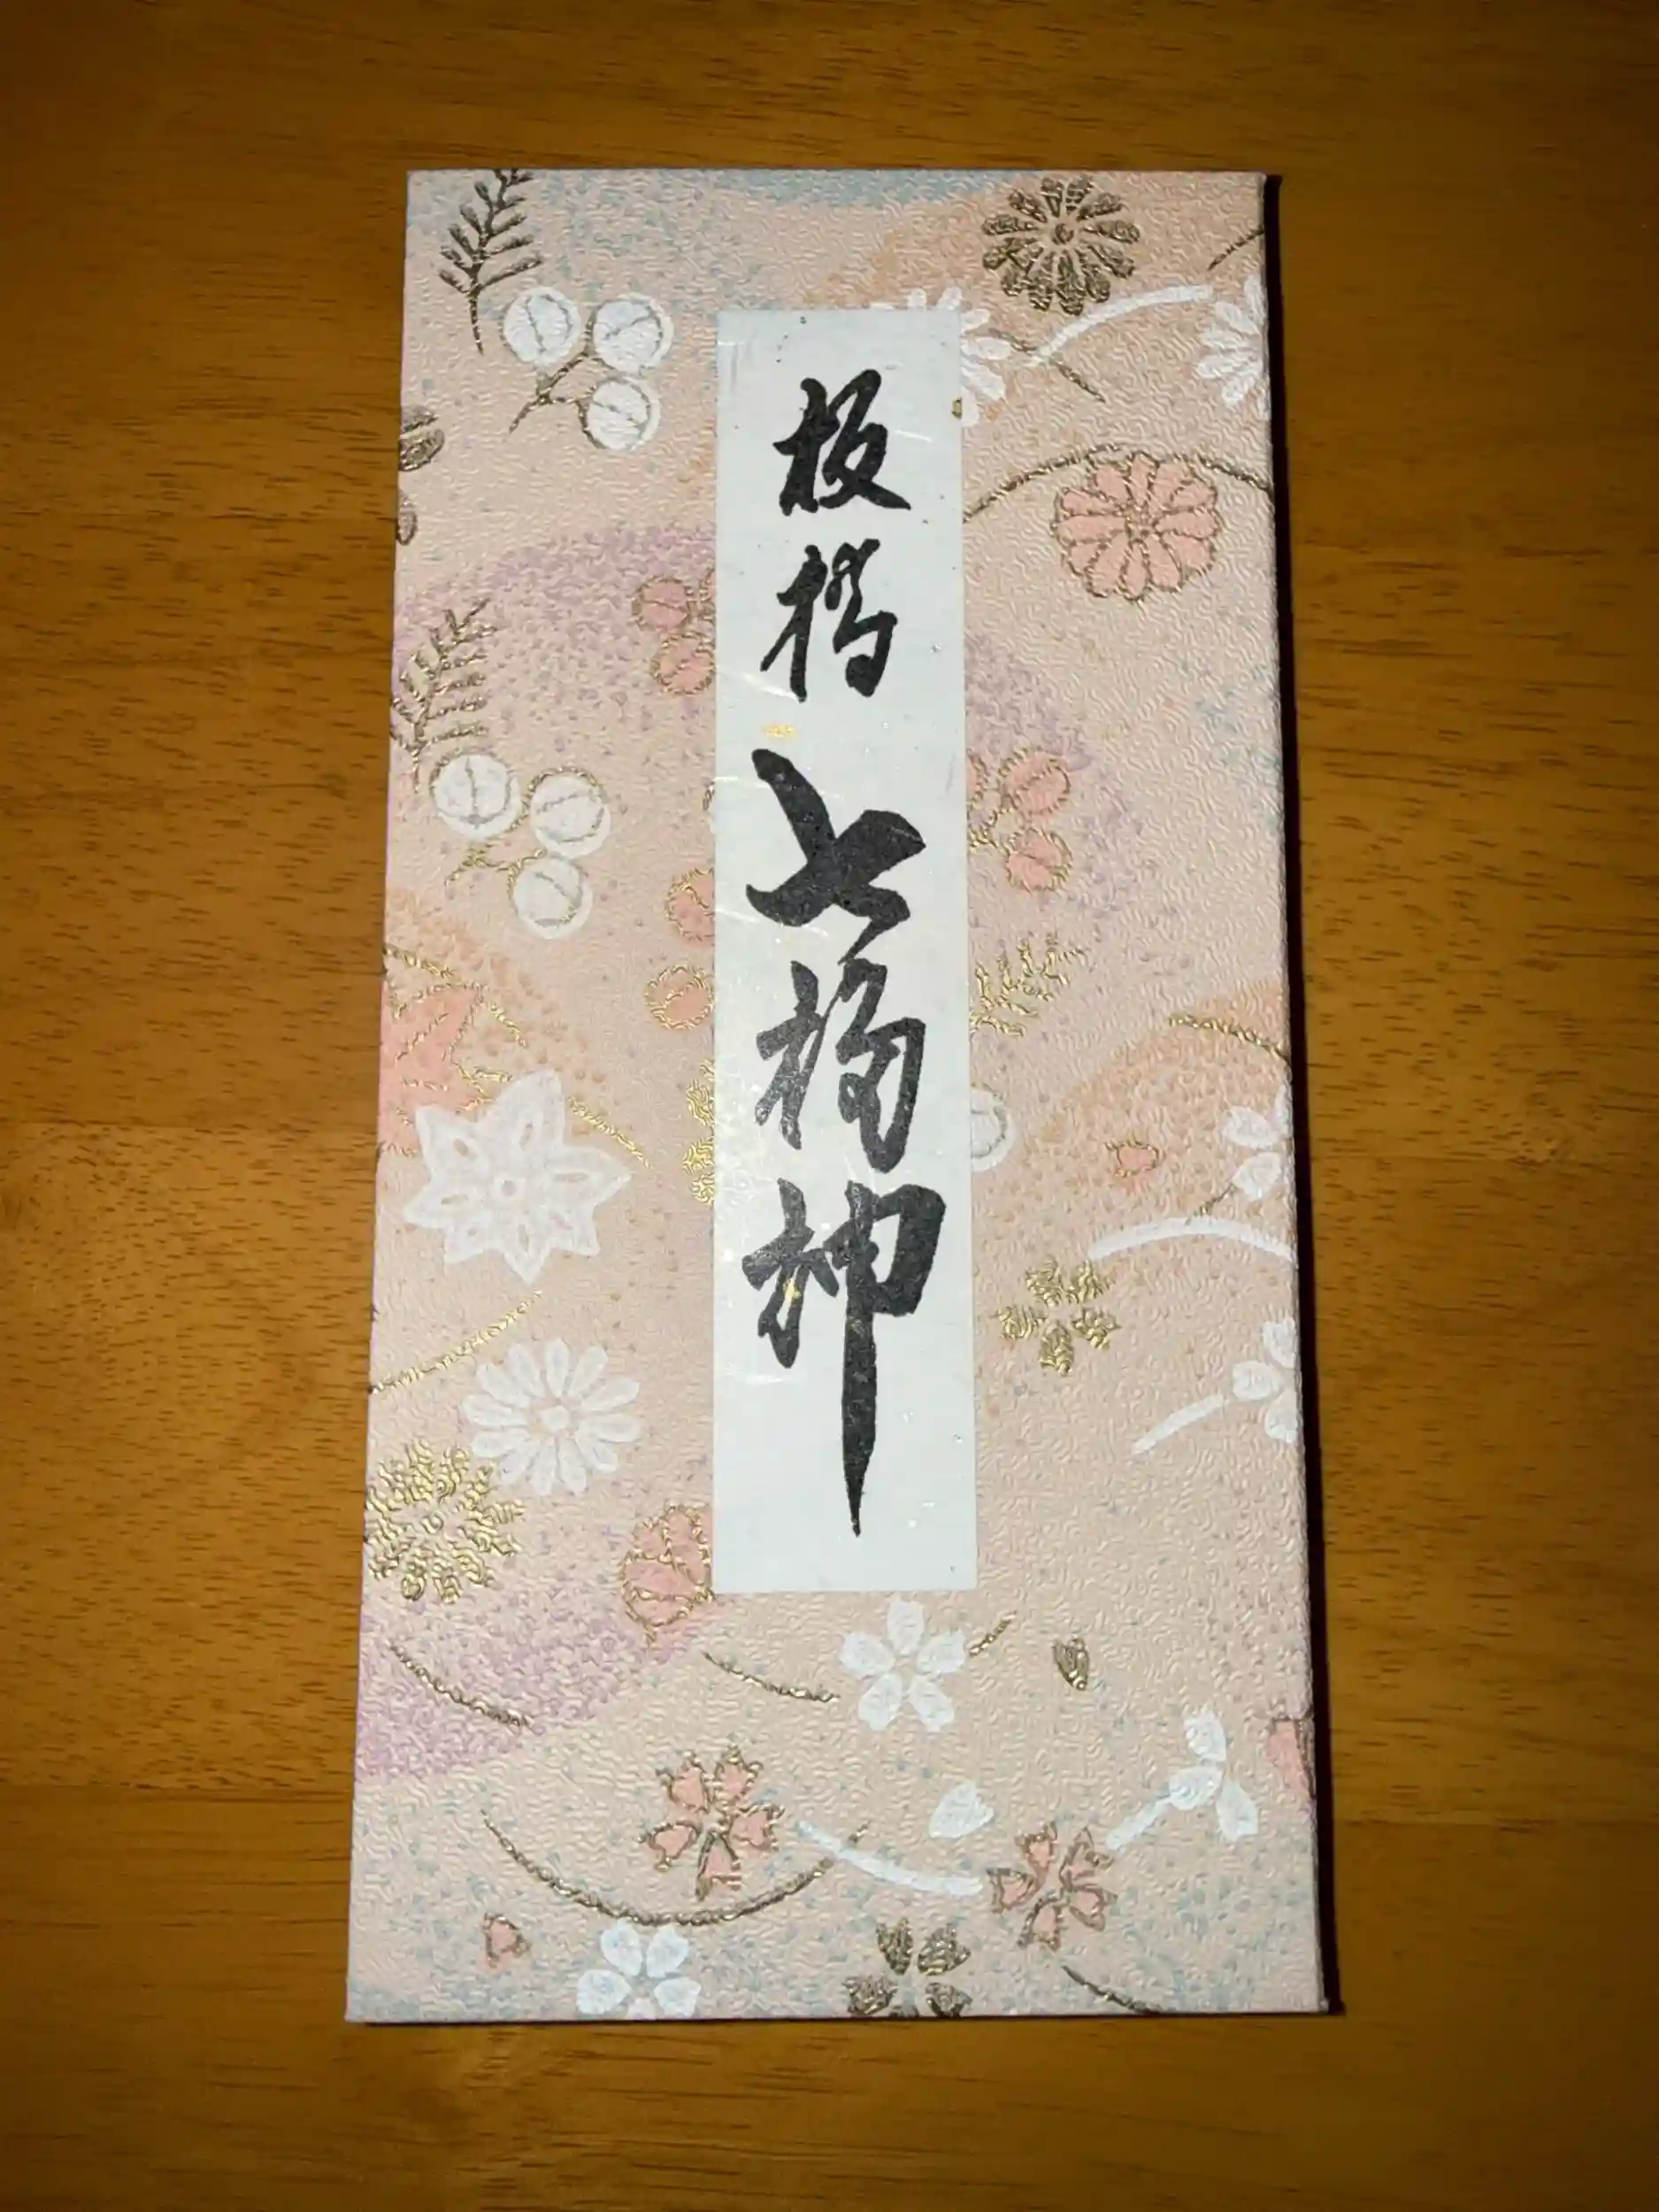 板橋七福神